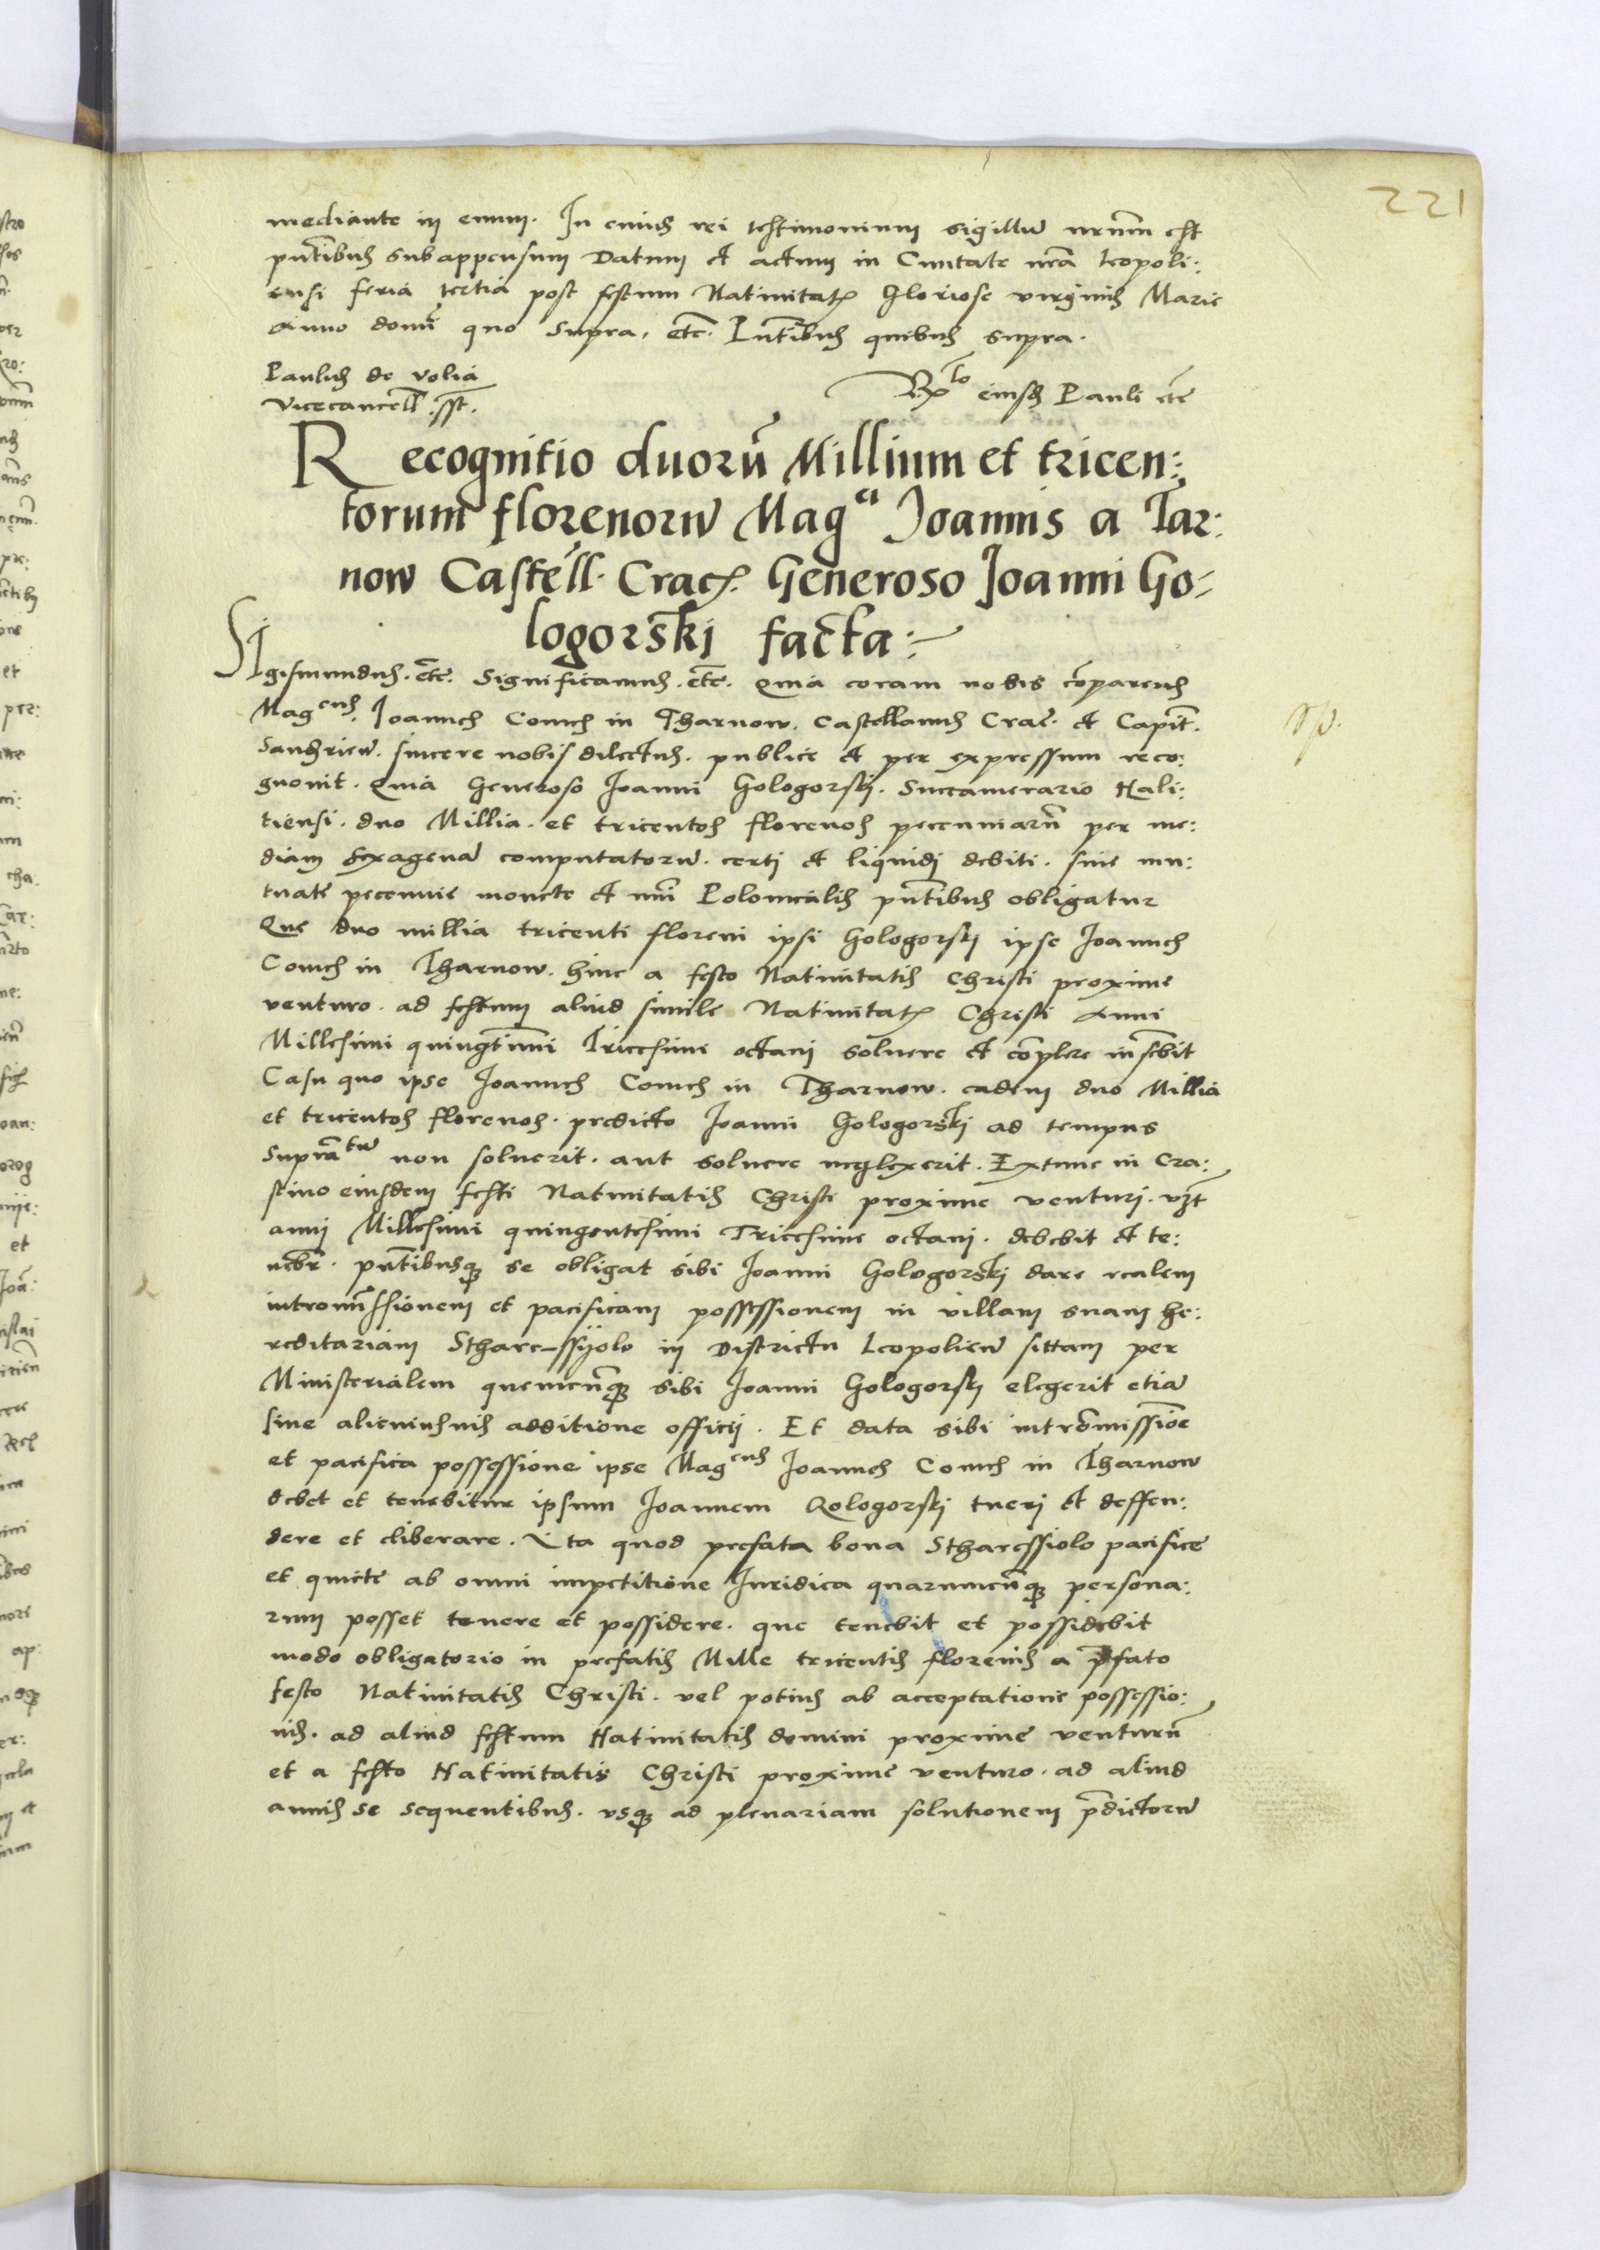 221
mediante in eum. In cuius rei testimonium sigillu nrum est
pntibus subappensum Datum et actum in Ciuitate nra Leopoli:
ensi feria tertia post festum Natiuitatis Gloriose virginis Marie
Anno domi quo supra, etc. Pntibus quibus supra.
Paulus de volia
Vicecancell. sst.
Rlo eiusdem Pauli etc
Recognitio duoru Millium et tricen:
torum florenoru Magci Joannis a Tar:
now Castell. Crac. Generoso Joanni Go-
logorski facta:
Sigismundus. etc. Significamus. etc. Quia coram nobis comparens
Magcus Joannes Comes in Tharnow. Castellanus Crac. et Capit.
Sandrien. sincere nobis dilectus. publice et per expressum reco:
gnouit. Quia Generoso Joanni Gologorski. Succamerario Hali:
tiensi. duo Millia. et tricentos florenos pecuniaru per me:
diam sexagena computatoru. certi et liquidi debiti. siue mu:
tuate pecunie monete et nui Polonicalis pntibus obligatur
Que duo millia tricenti floreni ipsi Gologorski ipse Joannes
Comes in Tharnow. hinc a festo Natiuitatis Christi proxime
venturo. ad festum aliud simile Natiuitatis Christi Anni
Millesimi quingtimi Tricesimi octaui soluere et complere inscbit
Casu quo ipse Joannes Comes in Tharnow. eadem duo Millia
et tricentos florenos. predicto Joanni Gologorski ad tempus
supratu non soluerit. aut soluere neglexerit. Extunc in Cra:
stino eiusdem festi Natiuitatis Christi proxime venturi. vzt
anni Millesimi quingentesimi Tricesimi octaui. debebit et te:
nebr. pntibusq se obligat sibi Joanni Gologorski dare realem
intromissionem et pacificam possessionem in villam suam he:
reditariam Sthare-ssyolo in Districtu Leopolien sittam per
Ministerialem quemcunq sibi Joanni Gologorski elegerit etia
sine alicuiusuis additione officii. Et data sibi intromissioe
et pacifica possessione ipse Magcus Joannes Comes in Tharnow
debet et tenebitur ipsum Joannem Gologorski tueri et deffen:
dere et eliberare. Ita quod prefata bona Stharessiolo pacifice
et quiete ab omni impetitione Juridica quarumcunq persona:
rum posset tenere et possidere. que tenebit et possidebit
modo obligatorio in prefatis Mille tricentis florenis a pfato
festo Natiuitatis Christi. vel potius ab acceptatione possessio:
nis. ad aliud festum Natiuitatis domini proxime venturu
et a festo Natiuitatis Christi proxime venturo. ad aliud
annis se sequentibus. vsq ad plenariam solutionem pdictoru